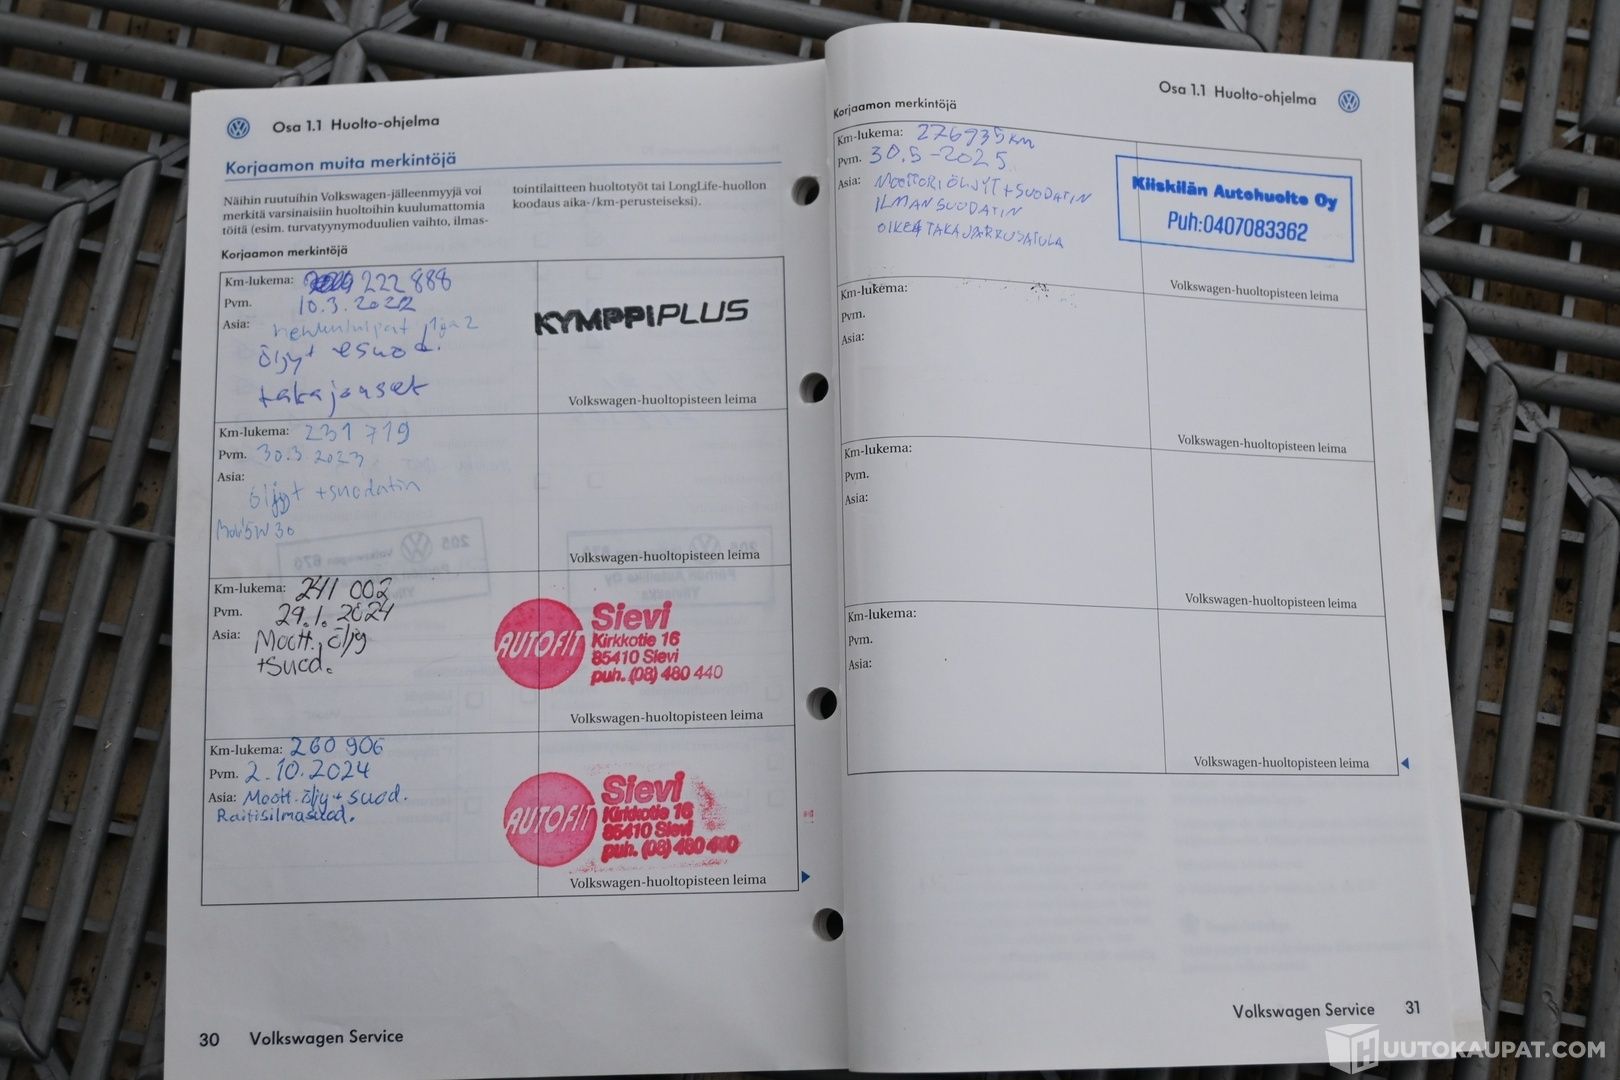 Osa 1.1 Huolto-ohjelma
Korjaamon muita merkintöjä
Näihin ruutuihin Volkswagen-jälleenmyyjä voi
merkitä varsinaisiin huoltoihin kuulumattomia
töitä (esim. turvatyynymoduulien vaihto, ilmas-
tointilaitteen huoltotyöt tai LongLife-huollon
koodaus aika-/km-perusteiseksi).
Korjaamon merkintöjä
Km-lukema: 222 888
Pvm. 10.3.2022
Asia: 1ja2
öljyt
takajouset
KYMPPIPLUS
Volkswagen-huoltopisteen leima
Km-lukema: 231 719
Pvm. 30.3.2023
Asia:
öljyt +suodatin
Mobil 5W30
Volkswagen-huoltopisteen leima
Km-lukema: 241 002
Pvm. 29.1.2024
Asia: Moott. öljy
+suod.
AUTOFIT
Sievi
Kirkkotie 16
85410 Sievi
puh. (08) 480 440
Volkswagen-huoltopisteen leima
Km-lukema: 260 906
Pvm. 2.10.2024
Asia: Moott. öljy + suod.
Raitisilmasuod.
AUTOFIT
Sievi
Kirkkotie 16
85410 Sievi
puh. (08) 480 440
Volkswagen-huoltopisteen leima
30 Volkswagen Service
Osa 1.1 Huolto-ohjelma
Korjaamon merkintöjä
Km-lukema: 276935km
Pvm. 30.5-2025
Asia: MOOTTORIÖLJYT+SUODATIN
ILMANSUODATIN
OIKEA TAKAJARRUSATULA
Kiiskilän Autohuolto Oy
Puh:0407083362
Volkswagen-huoltopisteen leima
Km-lukema:
Pvm.
Asia:
Volkswagen-huoltopisteen leima
Km-lukema:
Pvm.
Asia:
Volkswagen-huoltopisteen leima
Km-lukema:
Pvm.
Asia:
Volkswagen-huoltopisteen leima
Volkswagen Service 31
HUUTOKAUPAT.COM